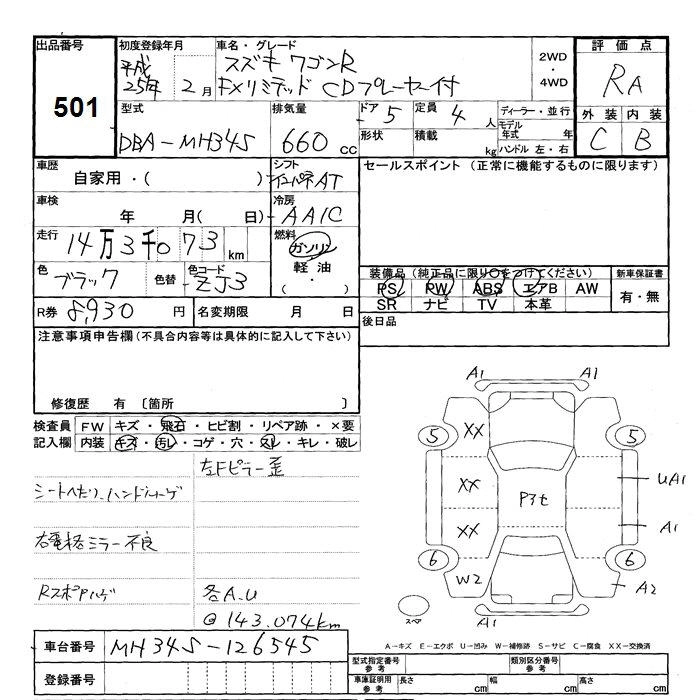 出品番号
501
初度登録年月
平成
25年 2月
車名・グレード
スズキ ワゴンR
FXリミテッド CDプレーヤー付
2WD
・
4WD
評価点
RA
外装 内装
C B
型式
DBA-MH34S
排気量
660 cc
ドア 5
定員 4 人
形状
積載 kg
ディーラー・並行
モデル
年式 年
ハンドル 左・右
車歴
自家用・( )
シフト
インパネAT
車検
年 月( 日)
冷房
AAIC
走行
14万3千073 km
燃料
ガソリン
軽油
( ・ )
色
ブラック
色替
色コード
ZJ3
R券 8,930 円
名変期限 月 日
セールスポイント (正常に機能するものに限ります)
装備品 (純正品に限り○をつけてください)
PS PW ABS エアB AW
SR ナビ TV 本革
新車保証書
有・無
後日品
注意事項申告欄(不具合内容等は具体的に記入して下さい)
修復歴 有 〔箇所 〕
検査員 FW キズ・飛石・ヒビ割・リペア跡・×要
記入欄 内装 キズ・汚レ・コゲ・穴・スレ・キレ・破レ
左Fピラー歪
シートヘタリ、ハンドルハゲ
右電格ミラー不良
RスポPハゲ
各A.U
@143,074km
A1 A1
5 5
XX
XX
XX
W2
P3セ
UA1
A1
A2
6 6
スペア
A1
A-キズ E-エクボ U-凹み W-補修跡 S-サビ C-腐食 XX-交換済
車台番号 MH34S-126545
登録番号
型式指定番号
参考
類別区分番号
参考
車庫証明用
参考
長さ cm
幅 cm
高さ cm